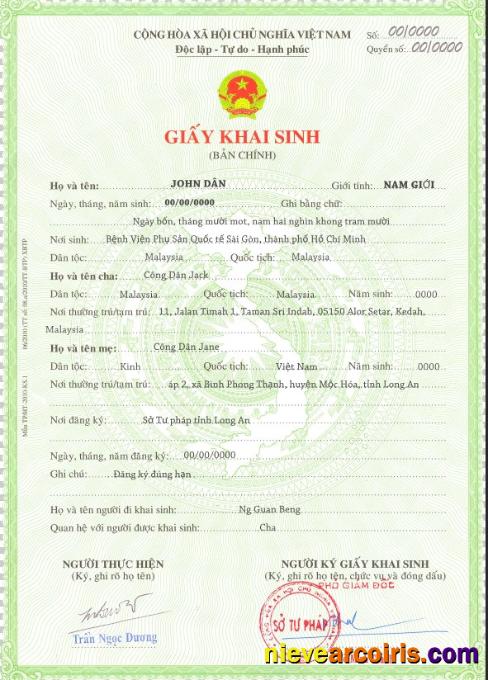 CỘNG HÒA XÃ HỘI CHỦ NGHĨA VIỆT NAM
Độc lập - Tự do - Hạnh phúc
Số: 00/0000
Quyển số: 00/0000
GIẤY KHAI SINH
(BẢN CHÍNH)
Họ và tên: JOHN DÂN Giới tính: NAM GIỚI
Ngày, tháng, năm sinh: 00/00/0000 Ghi bằng chữ:
Ngày bốn, tháng mười mot, nam hai nghin khong tram mười
Nơi sinh: Bệnh Viện Phụ Sản Quốc tế Sài Gòn, thành phố Hồ Chí Minh
Dân tộc: Malaysia Quốc tịch: Malaysia
Họ và tên cha: Công Dân Jack
Dân tộc: Malaysia Quốc tịch: Malaysia Năm sinh: 0000
Nơi thường trú/tạm trú: 11, Jalan Timah 1, Taman Sri Indah, 05150 Alor Setar, Kedah,
Malaysia
Họ và tên mẹ: Công Dân Jane
Dân tộc: Kinh Quốc tịch: Việt Nam Năm sinh: 0000
Nơi thường trú/tạm trú: áp 2, xã Bình Phong Thạnh, huyện Mộc Hóa, tỉnh Long An
Nơi đăng ký: Sở Tư pháp tỉnh Long An
Ngày, tháng, năm đăng ký: 00/00/0000
Ghi chú: Đăng ký đúng hạn
Họ và tên người đi khai sinh: Ng Guan Beng
Quan hệ với người được khai sinh: Cha
NGƯỜI THỰC HIỆN
(Ký, ghi rõ họ tên)
Trần Ngọc Dương
NGƯỜI KÝ GIẤY KHAI SINH
(Ký, ghi rõ họ tên, chức vụ và đóng dấu)
PHÓ GIÁM ĐỐC
SỞ TƯ PHÁP
nievearcoiris.com